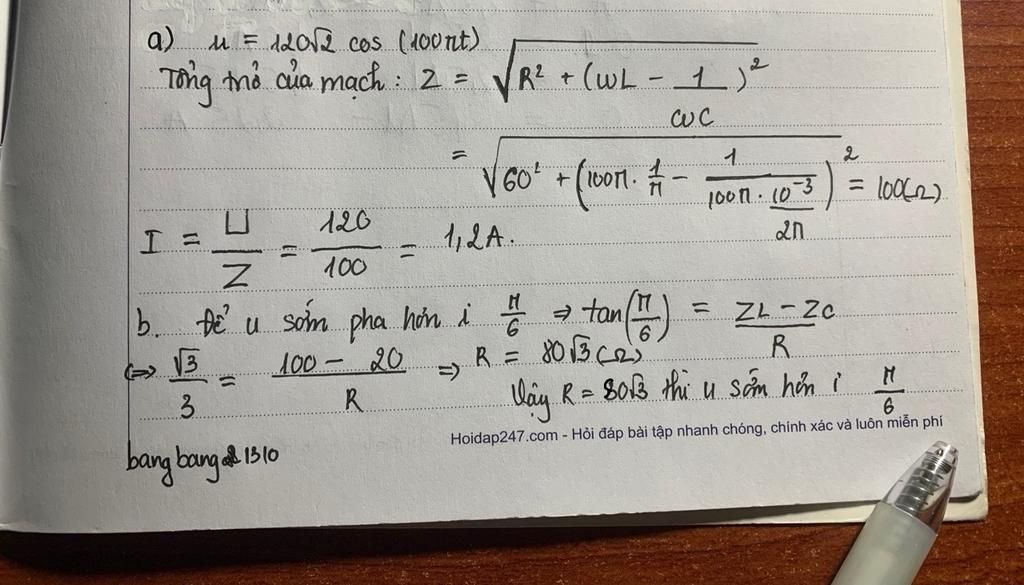 a) u = 120√2 cos (100πt)
Tổng trở của mạch : Z = √(R² + (ωL - 1/ωC)²)
= √(60² + (100π . 1/π - 1/(100π . 10⁻³/2π))²) = 100(Ω)
I = U/Z = 120/100 = 1,2A.
b. Để u sớm pha hơn i π/6 ⇒ tan(π/6) = (ZL - ZC)/R
⇔ √3/3 = (100 - 20)/R ⇒ R = 80√3 (Ω)
Vậy R = 80√3 thì u sớm hơn i π/6
Hoidap247.com - Hỏi đáp bài tập nhanh chóng, chính xác và luôn miễn phí